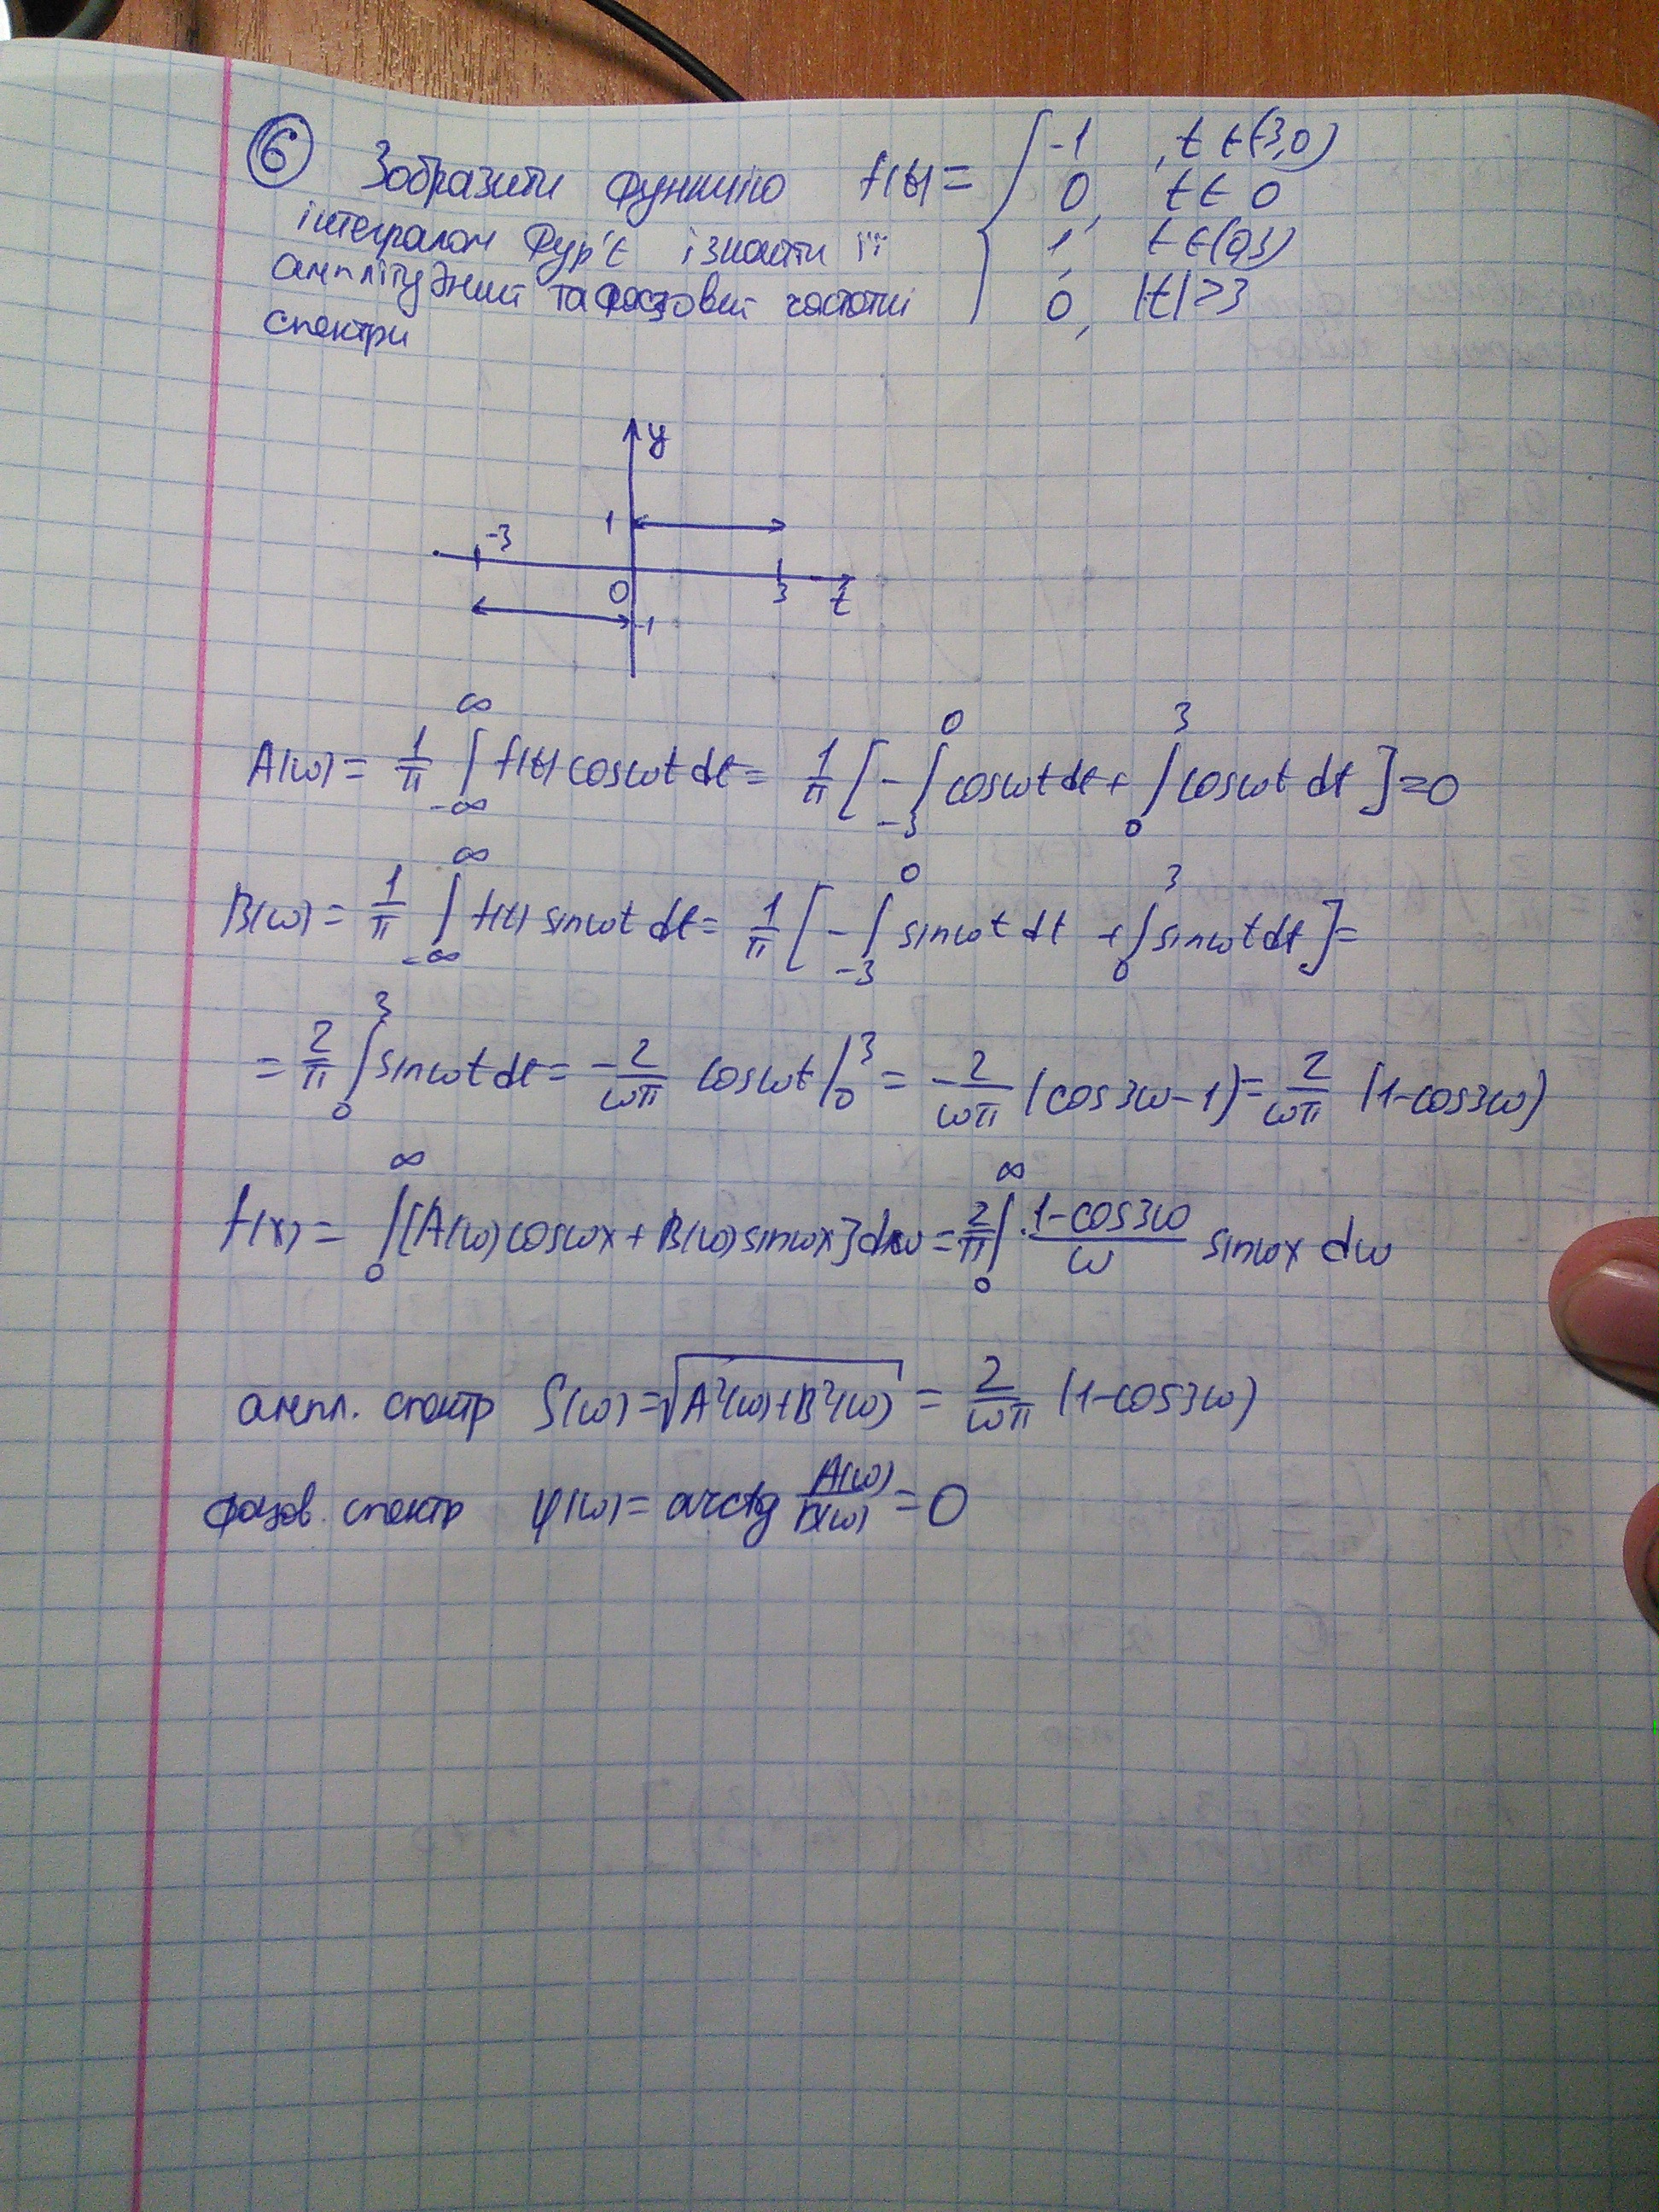 6 Зобразити функцію f(t) = { -1 , t ∈ (-3,0)
0, t ∈ 0
інтегралом Фур'є і знайти її 1, t ∈ (0,3)
амплітудний та фазовий частотні 0, |t| > 3
спектри
y
1
-3
0 3 t
-1
A(ω) = 1/π ∫_{-∞}^{∞} f(t) cosωt dt = 1/π [ -∫_{-3}^{0} cosωt dt + ∫_{0}^{3} cosωt dt ] = 0
B(ω) = 1/π ∫_{-∞}^{∞} f(t) sinωt dt = 1/π [ -∫_{-3}^{0} sinωt dt + ∫_{0}^{3} sinωt dt ] =
= 2/π ∫_{0}^{3} sinωt dt = -2/ωπ cosωt |_{0}^{3} = -2/ωπ (cos3ω - 1) = 2/ωπ (1-cos3ω)
f(x) = ∫_{0}^{∞} [A(ω) cosωx + B(ω) sinωx] dω = 2/π ∫_{0}^{∞} (1-cos3ω)/ω sinωx dω
ампл. спектр S(ω) = √(A²(ω)+B²(ω)) = 2/ωπ (1-cos3ω)
фазов. спектр φ(ω) = arctg A(ω)/B(ω) = 0